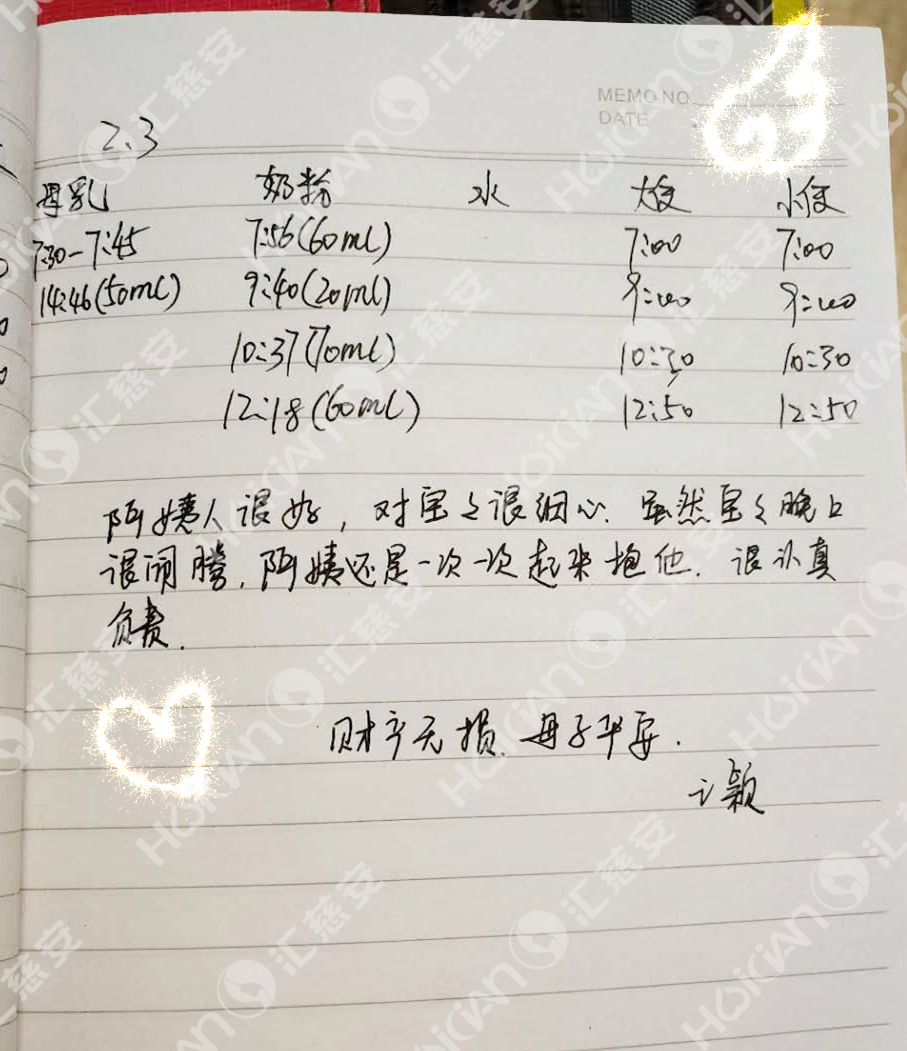 MEMO NO.
DATE
2.3
母乳 奶粉 水 大便 小便
7:30-7:45 7:56(60ml) 7:00 7:00
14:46(50ml) 9:40(20ml) 9:00 9:00
10:37(70ml) 10:30 10:30
12:18(60ml) 12:50 12:50
阿姨人很好,对宝宝很细心.虽然宝宝晚上
很闹腾,阿姨还是一次一次起来抱他.很认真
负责.
财产无损.母子平安.
颖
汇慈安
HUICIAN